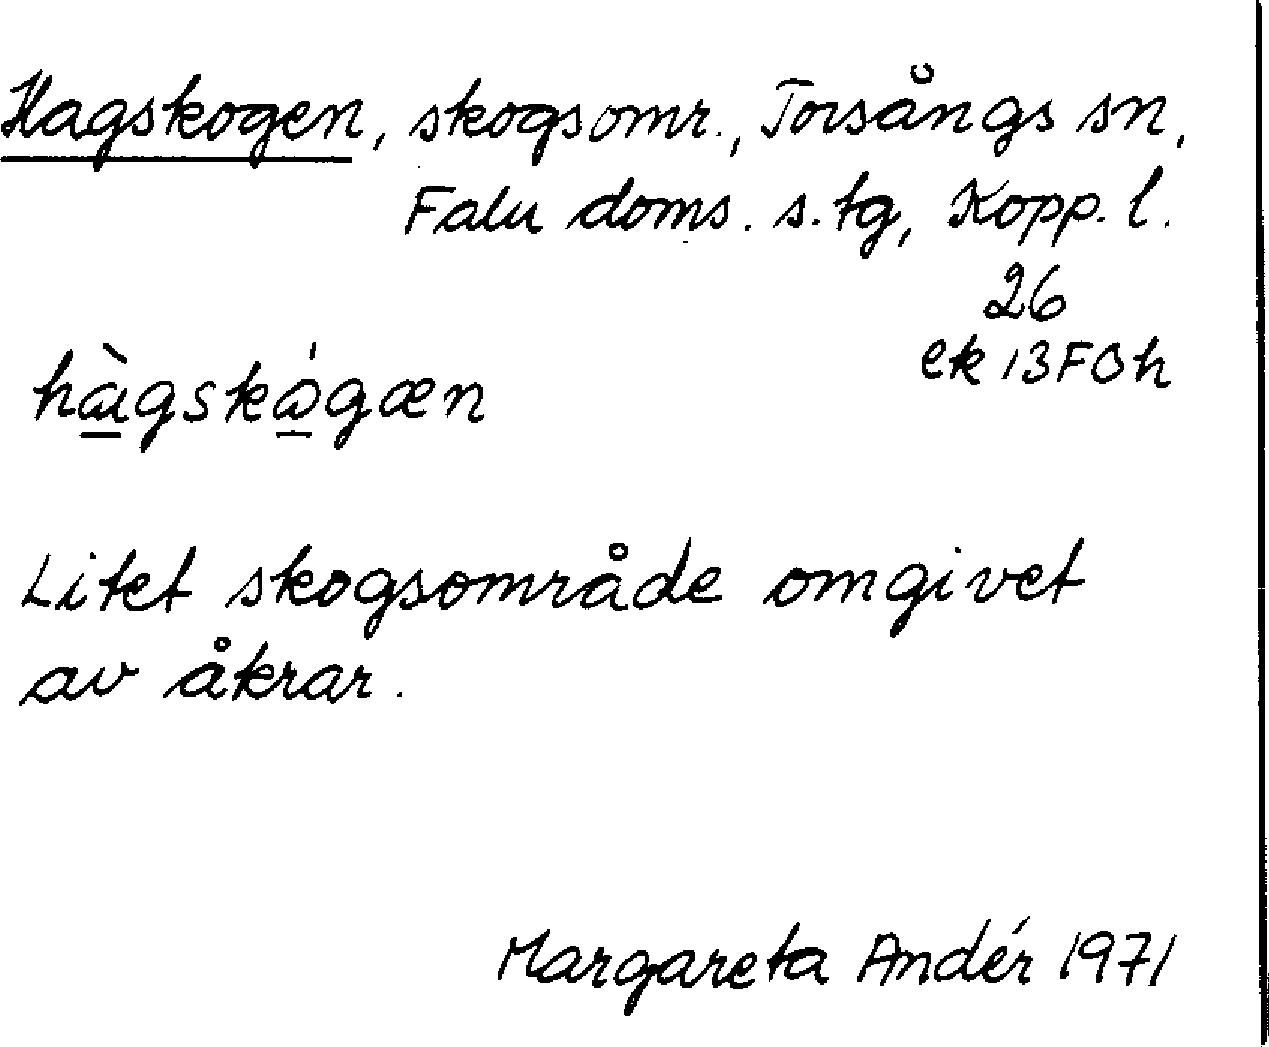 Hagskogen, skogsomr., Torsångs sn,
Falu doms. s. tg, Kopp. l.
26
ek 13F0h
hàgskógæn
Litet skogsområde omgivet
av åkrar.
Margareta Andér 1971